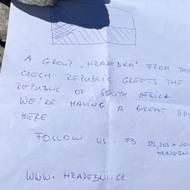 A GROUP „HRAZEDNI" FROM THE
CZECH REPUBLIC GREETS THE
REPUBLIC OF SOUTH AFRICA
WE'RE HAVING A GREAT
HERE
FOLLOW US: FB
WWW.HRAZEDNI.CZ